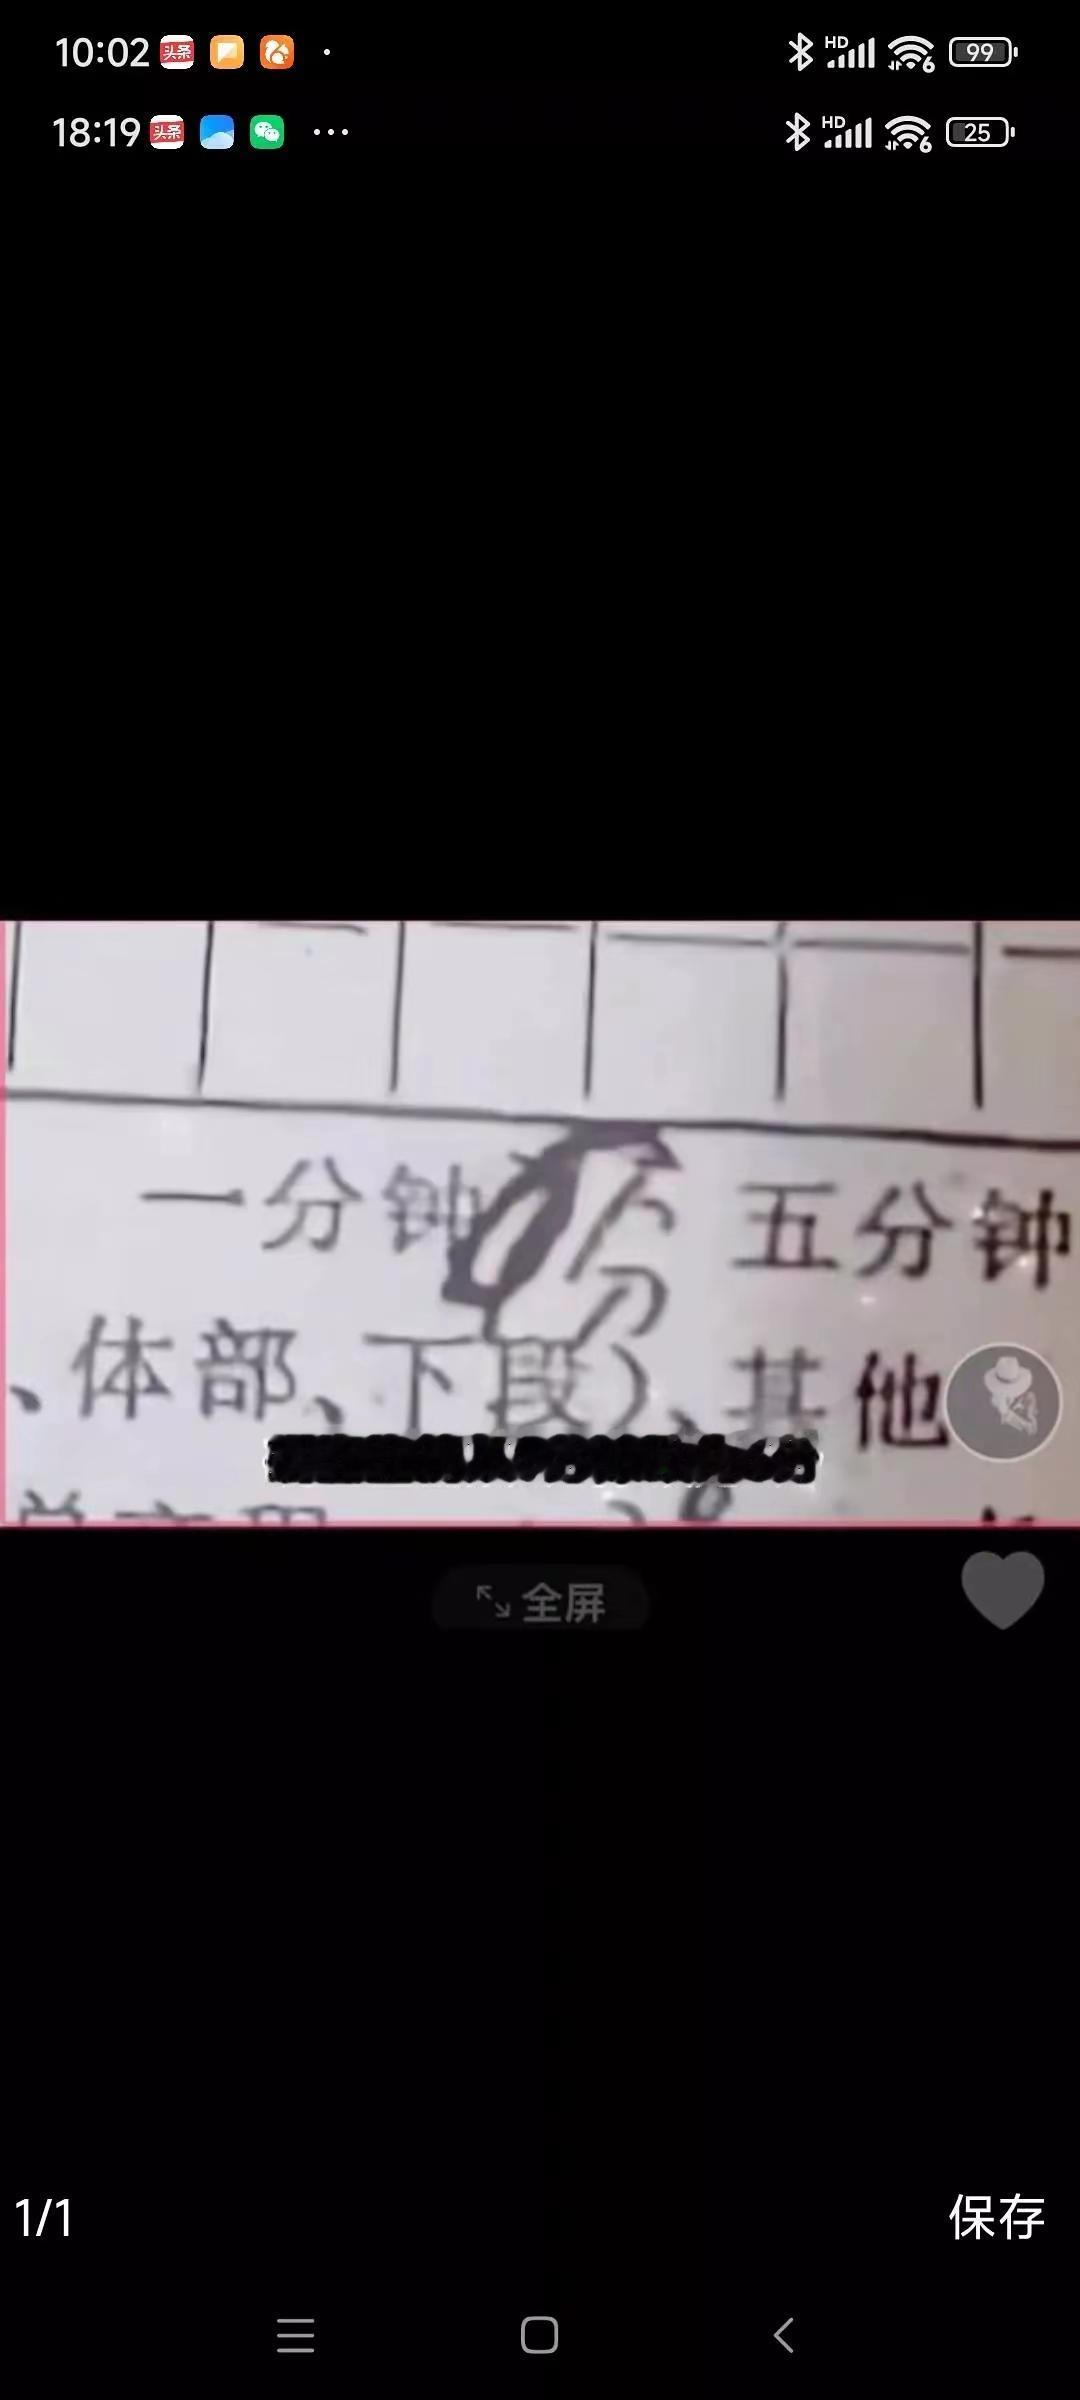 10:02 头条 HD 6 99
18:19 头条 HD 6 25
一分钟 分 五分钟
、体部、下段)、其他
全屏
1/1 保存